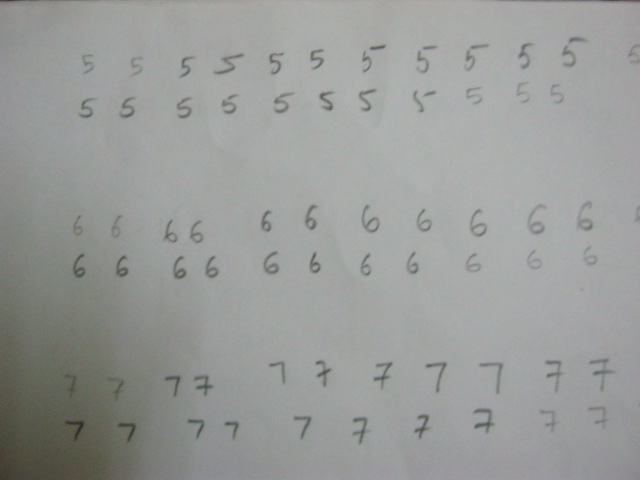 5 5 5 5 5 5 5 5 5 5 5 5
5 5 5 5 5 5 5 5 5 5 5
6 6 6 6 6 6 6 6 6 6 6
6 6 6 6 6 6 6 6 6 6 6
7 7 7 7 7 7 7 7 7 7 7
7 7 7 7 7 7 7 7 7 7